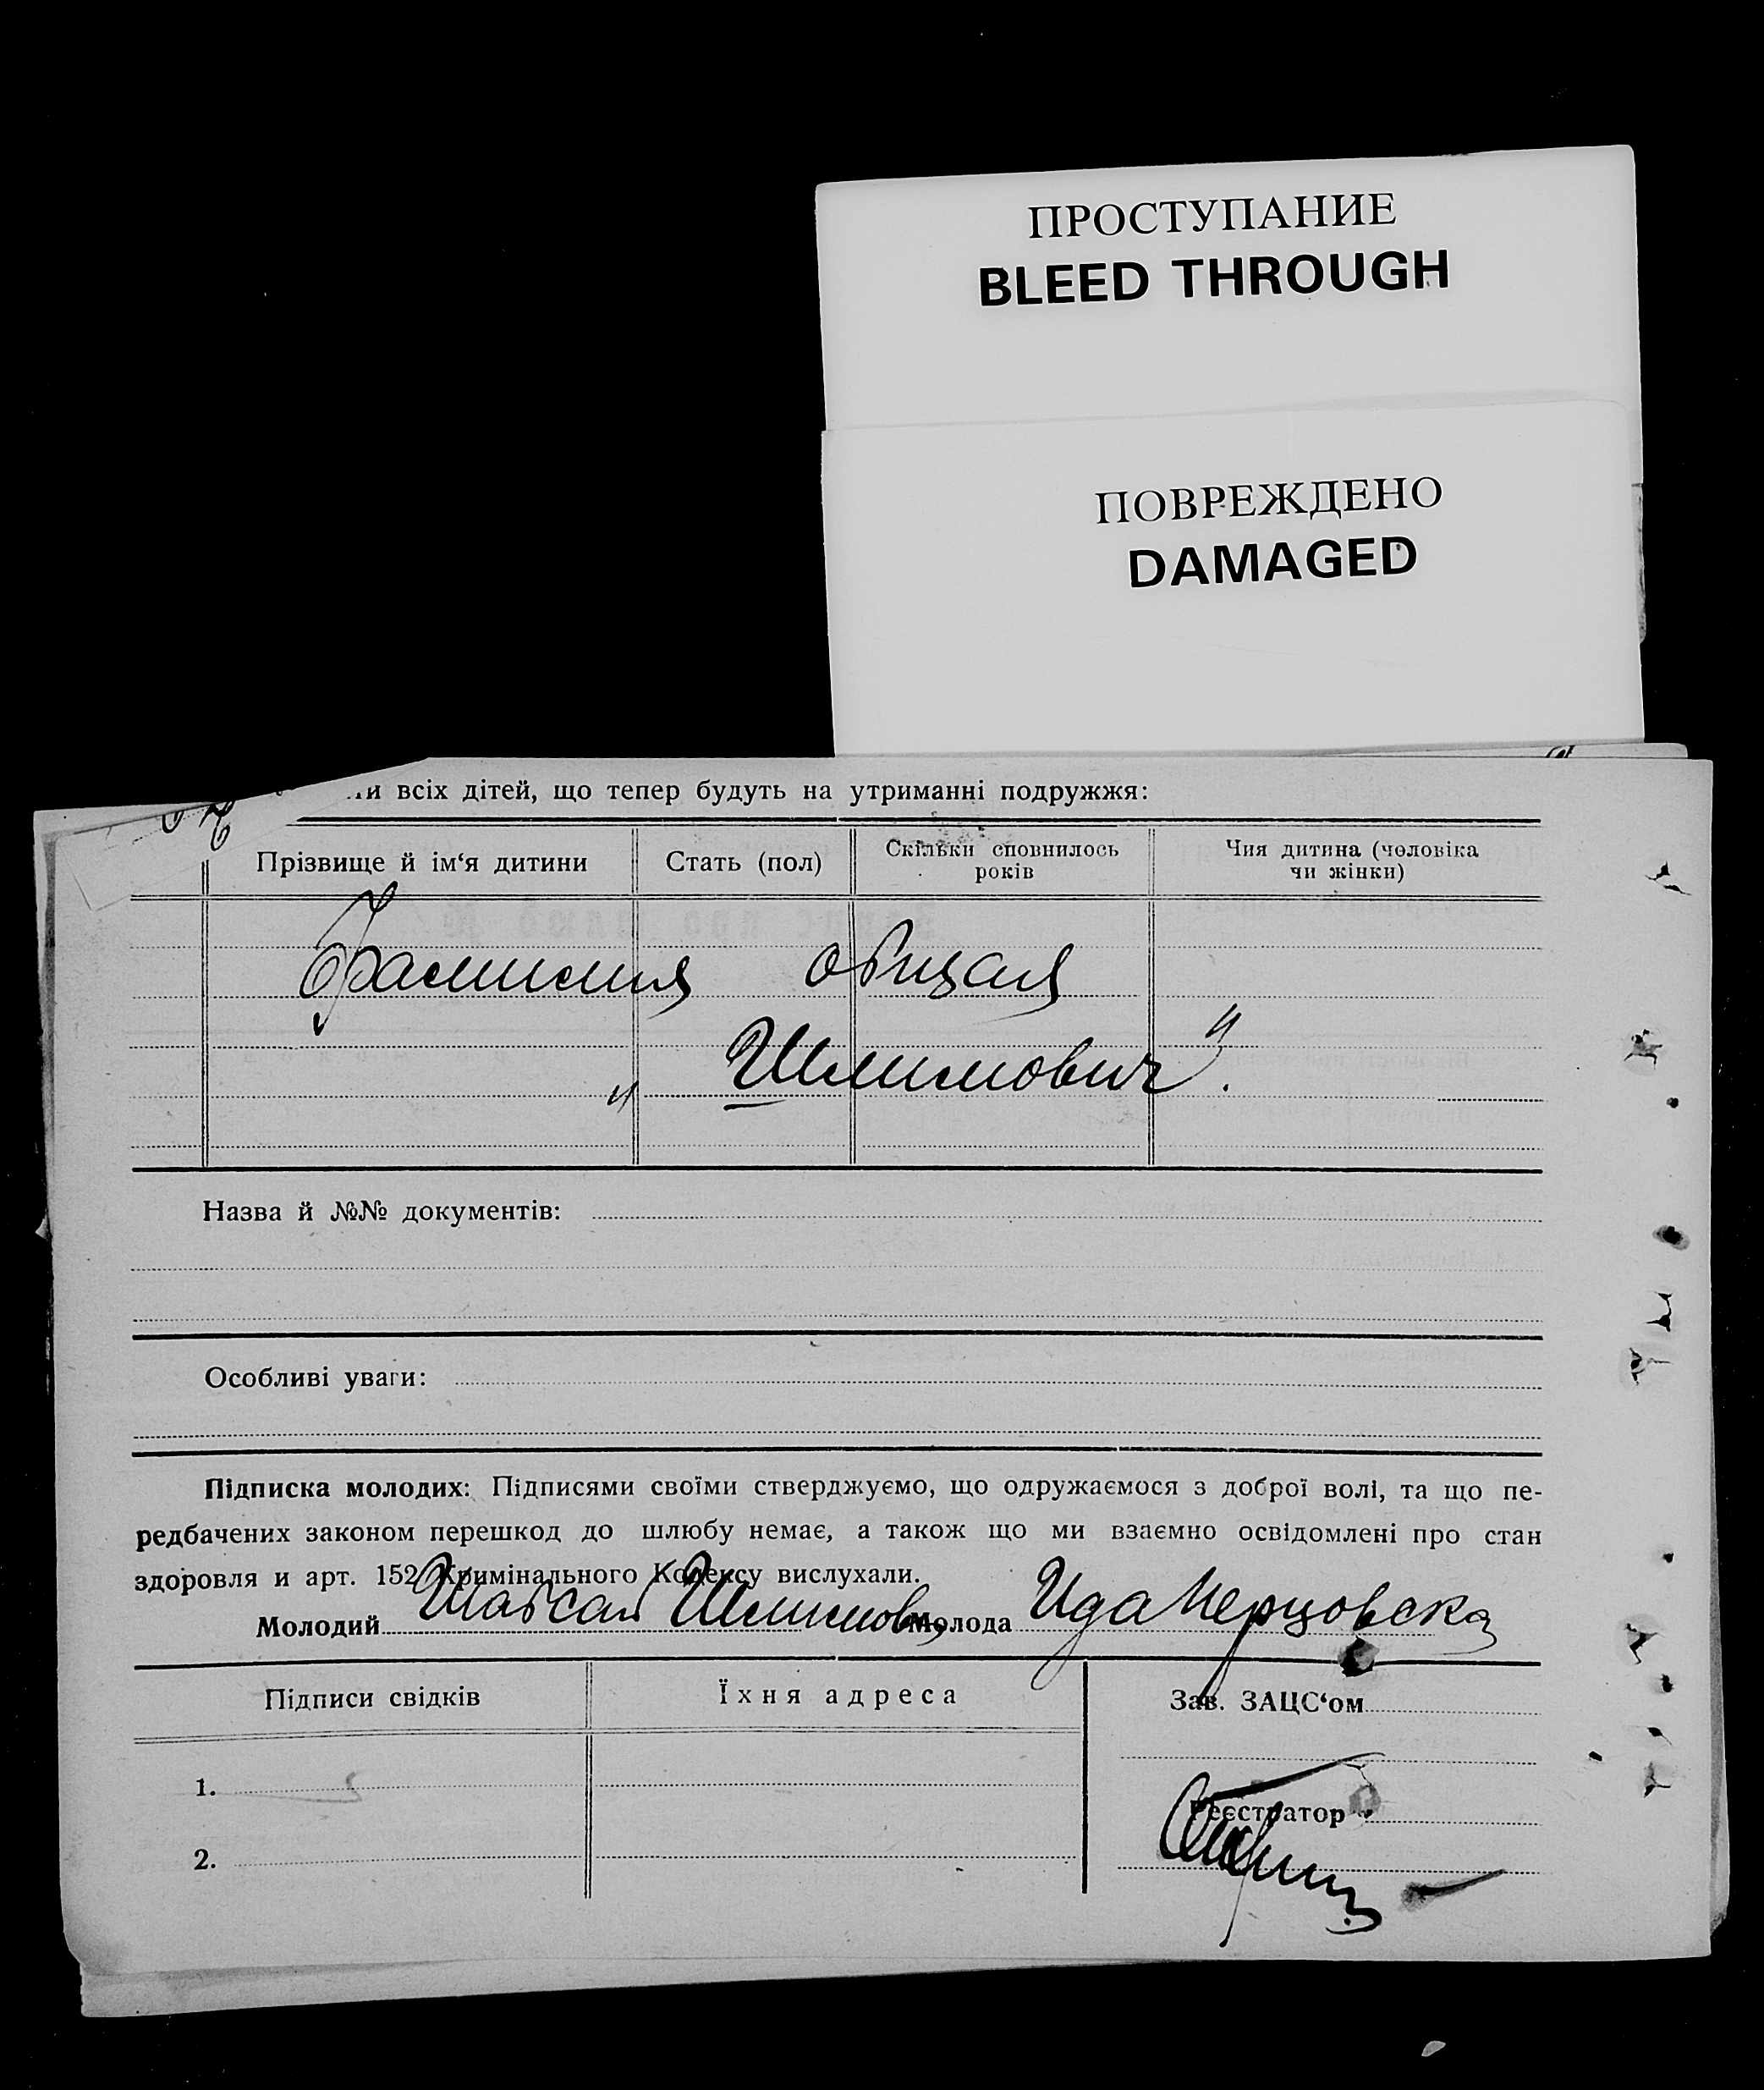 ПРОСТУПАНИЕ
BLEED THROUGH
ПОВРЕЖДЕНО
DAMAGED
всіх дітей, що тепер будуть на утриманні подружжя:
Прізвище й ім‘я дитини Стать (пол) Скільки сповнилось років Чия дитина (чоловіка чи жінки)
Фамилия общая
„ Шлимович “.
Назва й №№ документів:
Особливі уваги:
Підписка молодих: Підписями своїми стверджуємо, що одружаємося з доброї волі, та що пе-
редбачених законом перешкод до шлюбу немає, а також що ми взаємно освідомлені про стан
здоровля и арт. 152 Кримінального Кодексу вислухали.
Молодий Шлимов Молода Ида
Підписи свідків Їхня адреса Зав. ЗАЦС‘ом
1.
Реєстратор
2.